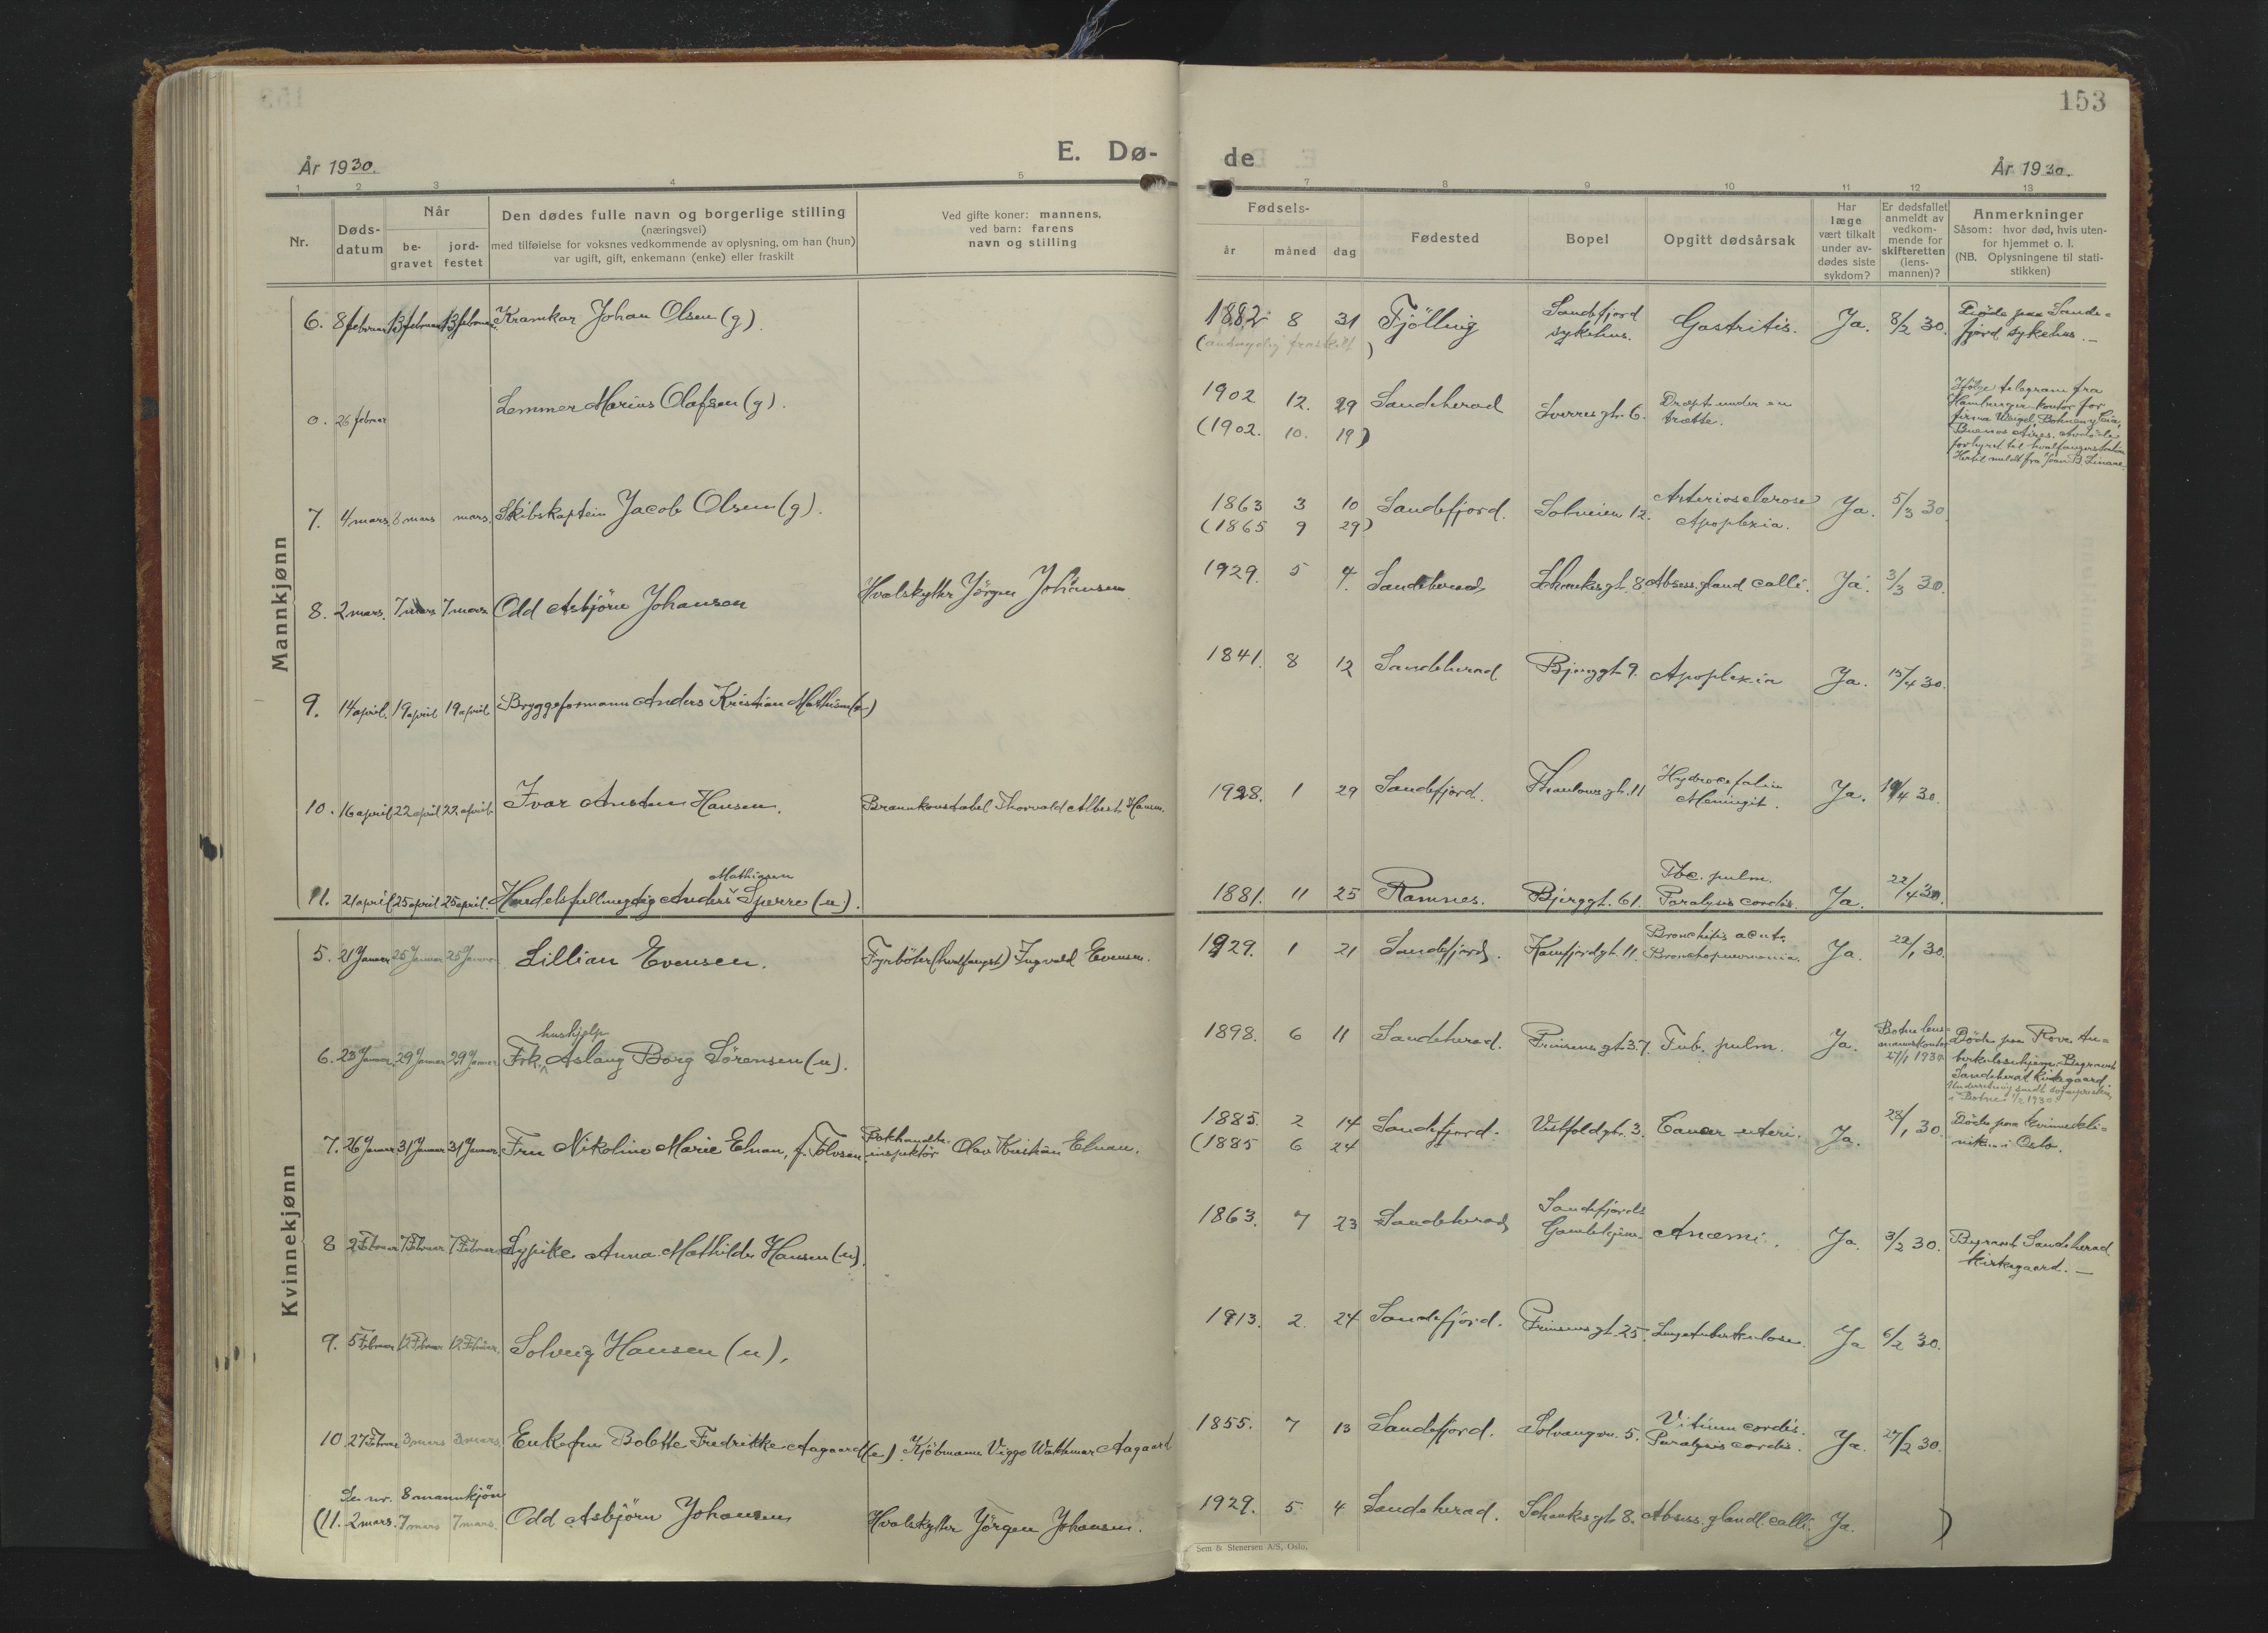 153
År 1930.
E. Dø-
de
År 1930.
1 2 3 4 5 6 7 8 9 10 11 12 13
Nr.
Døds-
datum
Når
be-
gravet
jord-
festet
Den dødes fulle navn og borgerlige stilling
(næringsvei)
med tilføielse for voksnes vedkommende av oplysning, om han (hun)
var ugift, gift, enkemann (enke) eller fraskilt
Ved gifte koner: mannens,
ved barn: farens
navn og stilling
Fødsels-
år måned dag
Fødested
Bopel
Opgitt dødsårsak
Har
læge
vært tilkalt
under av-
dødes siste
sykdom?
Er dødsfallet
anmeldt av
vedkom-
mende for
skifteretten
(lens-
mannen)?
Anmerkninger
Såsom: hvor død, hvis uten-
for hjemmet o. l.
(NB. Oplysningene til stati-
stikken)
Mannkjønn
6. 8 februar 13 februar 13 februar Kramkar Johan Olsen (g). 1882 8 31 Fjölling Sandefjord sykehus. Gastritis. Ja. 8/2 30. Döde paa Sande-
fjord sykehus. —
0. 26 februar Lemmer Marius Olafsen (g). 1902 12. 29 Sandeherad Sverresgt. 6. Dræpt under en trætte. Ifölge telegram fra
Hamburger kontor for
firma
Buenos Aires.
(1902. 10. 19)
7. 4 mars 8 mars mars. Skibskaptein Jacob Olsen (g). 1863 3 10 Sandefjord. Solveien 12. Arteriosclerose Apoplexia. Ja. 5/3 30.
(1865 9 29)
8. 2 mars. 7 mars 7 mars Odd Asbjörn Johansen Hvalskytter Jörgen Johansen 1929. 5 4. Sandeherad Schankesgt. 8. Absess. gland. colli. Ja. 3/3 30.
9. 14 april. 19 april 19 april Bryggeformann Anders Kristian Mathisen 1841. 8 12 Sandeherad Bjerggt. 9. Apoplexia Ja. 15/4 30.
10. 16 april 22 april 22 april Ivar Austen Hansen. Brannkonstabel Thorvald Albert Hansen. 1928. 1 29 Sandefjord. Thaulowsgt. 11 Hydrocefalus Meningit. Ja. 19/4 30.
Mathiasen
11. 21 april 25 april 25 april. Handelsfullmegtig Anders Sperre (u). 1881. 11 25 Ramnes. Bjerggt. 61. Tbc. pulm. Paralysis cordis. Ja. 22/4 30.
Kvinnekjønn
5. 21 Januar 25 Januar 25 Januar Lillian Evensen. Fyrböter (hvalfangst) Ingvald Evensen. 1929. 1 21 Sandefjord. Kamfjordgt. 11. Bronchitis acuta Bronchopneumonia. Ja. 22/1 30.
hushjelp
6. 23 Januar 29 Januar 29 Januar Frk. Aslaug Borg Sörensen (u). 1898. 6 11 Sandeherad. Prinsensgt. 37. Tub. pulm. Ja. Botne lens-
mannskontor
27/1 1930 Döde paa Rove tu-
berkulosehjem. Begravet
Sandeherad Kirkegaard.
Underretning sendt sognepresten
i Botne 1/2 1930.
7. 26 Januar 31 Januar 31 Januar Fru Nikoline Marie Elnan, f. Tolvsen. inspektör Olav Kristian Elnan. 1885. 2 14 Sandefjord. Vestfoldgt. 3. Cancer uteri. Ja. 28/1 30. Döde paa kvinnekli-
nikken i Oslo.
(1885 6 24
8 2 Februar 7 Februar 7 Februar Sypike Anna Mathilde Hansen (u). 1863. 7 23 Sandeherad Sandefjords Gamlehjem. Anæmi. Ja. 3/2 30. Begravet Sandeherad
kirkegaard. —
9. 5 Februar 12 Februar 12 Februar. Solveig Hansen (u), 1913. 2 24 Sandefjord. Prinsensgt. 25. Lungetuberkulose. Ja 6/2 30.
10 27 Februar 3 mars 3 mars. Enkefru Bolette Fredrikke Aagaard (e). Kjöbmann Viggo Waldemar Aagaard 1855. 7 13 Sandefjord. Solvangvn. 5. Vitium cordis. Paralysis cordis. Ja. 27/2 30.
Se nr. 8 mannkjön
(11. 2 mars. 7 mars 7 mars. Odd Asbjörn Johansen Hvalskytter Jörgen Johansen. 1929. 5 4 Sandeherad. Schankesgt. 8. Absess. glandl. colli. Ja. )
Sem & Stenersen A/S, Oslo.